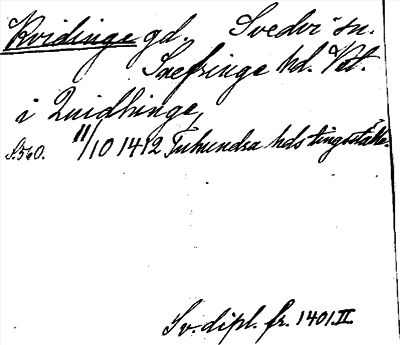 Kvidinge gd. Svedvi sn.
Snefringe hd. Vstm.
i Quidhinge
S. 560. 11/10 1412 Tuhundra hds tingställe.
Sv. dipl. fr. 1401. II.